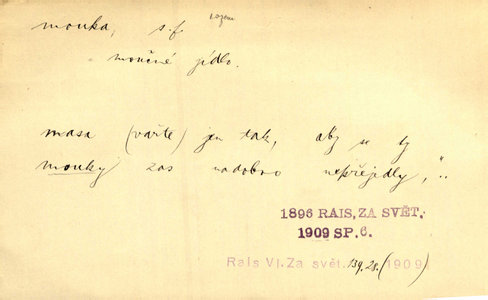 mouka, s. f.
moučné jídlo.
masa (vařte) jen tak, aby se ty
mouky zas nadobro nepřejídly,"..
1896 RAIS, ZA SVĚT.
1909 SP. 6.
Rais VI. Za svět. 139.28. (1909)